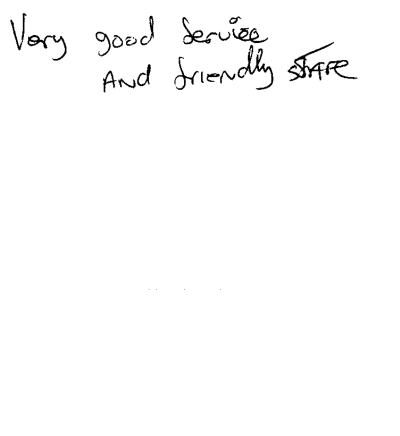 Very good service
And friendly staff